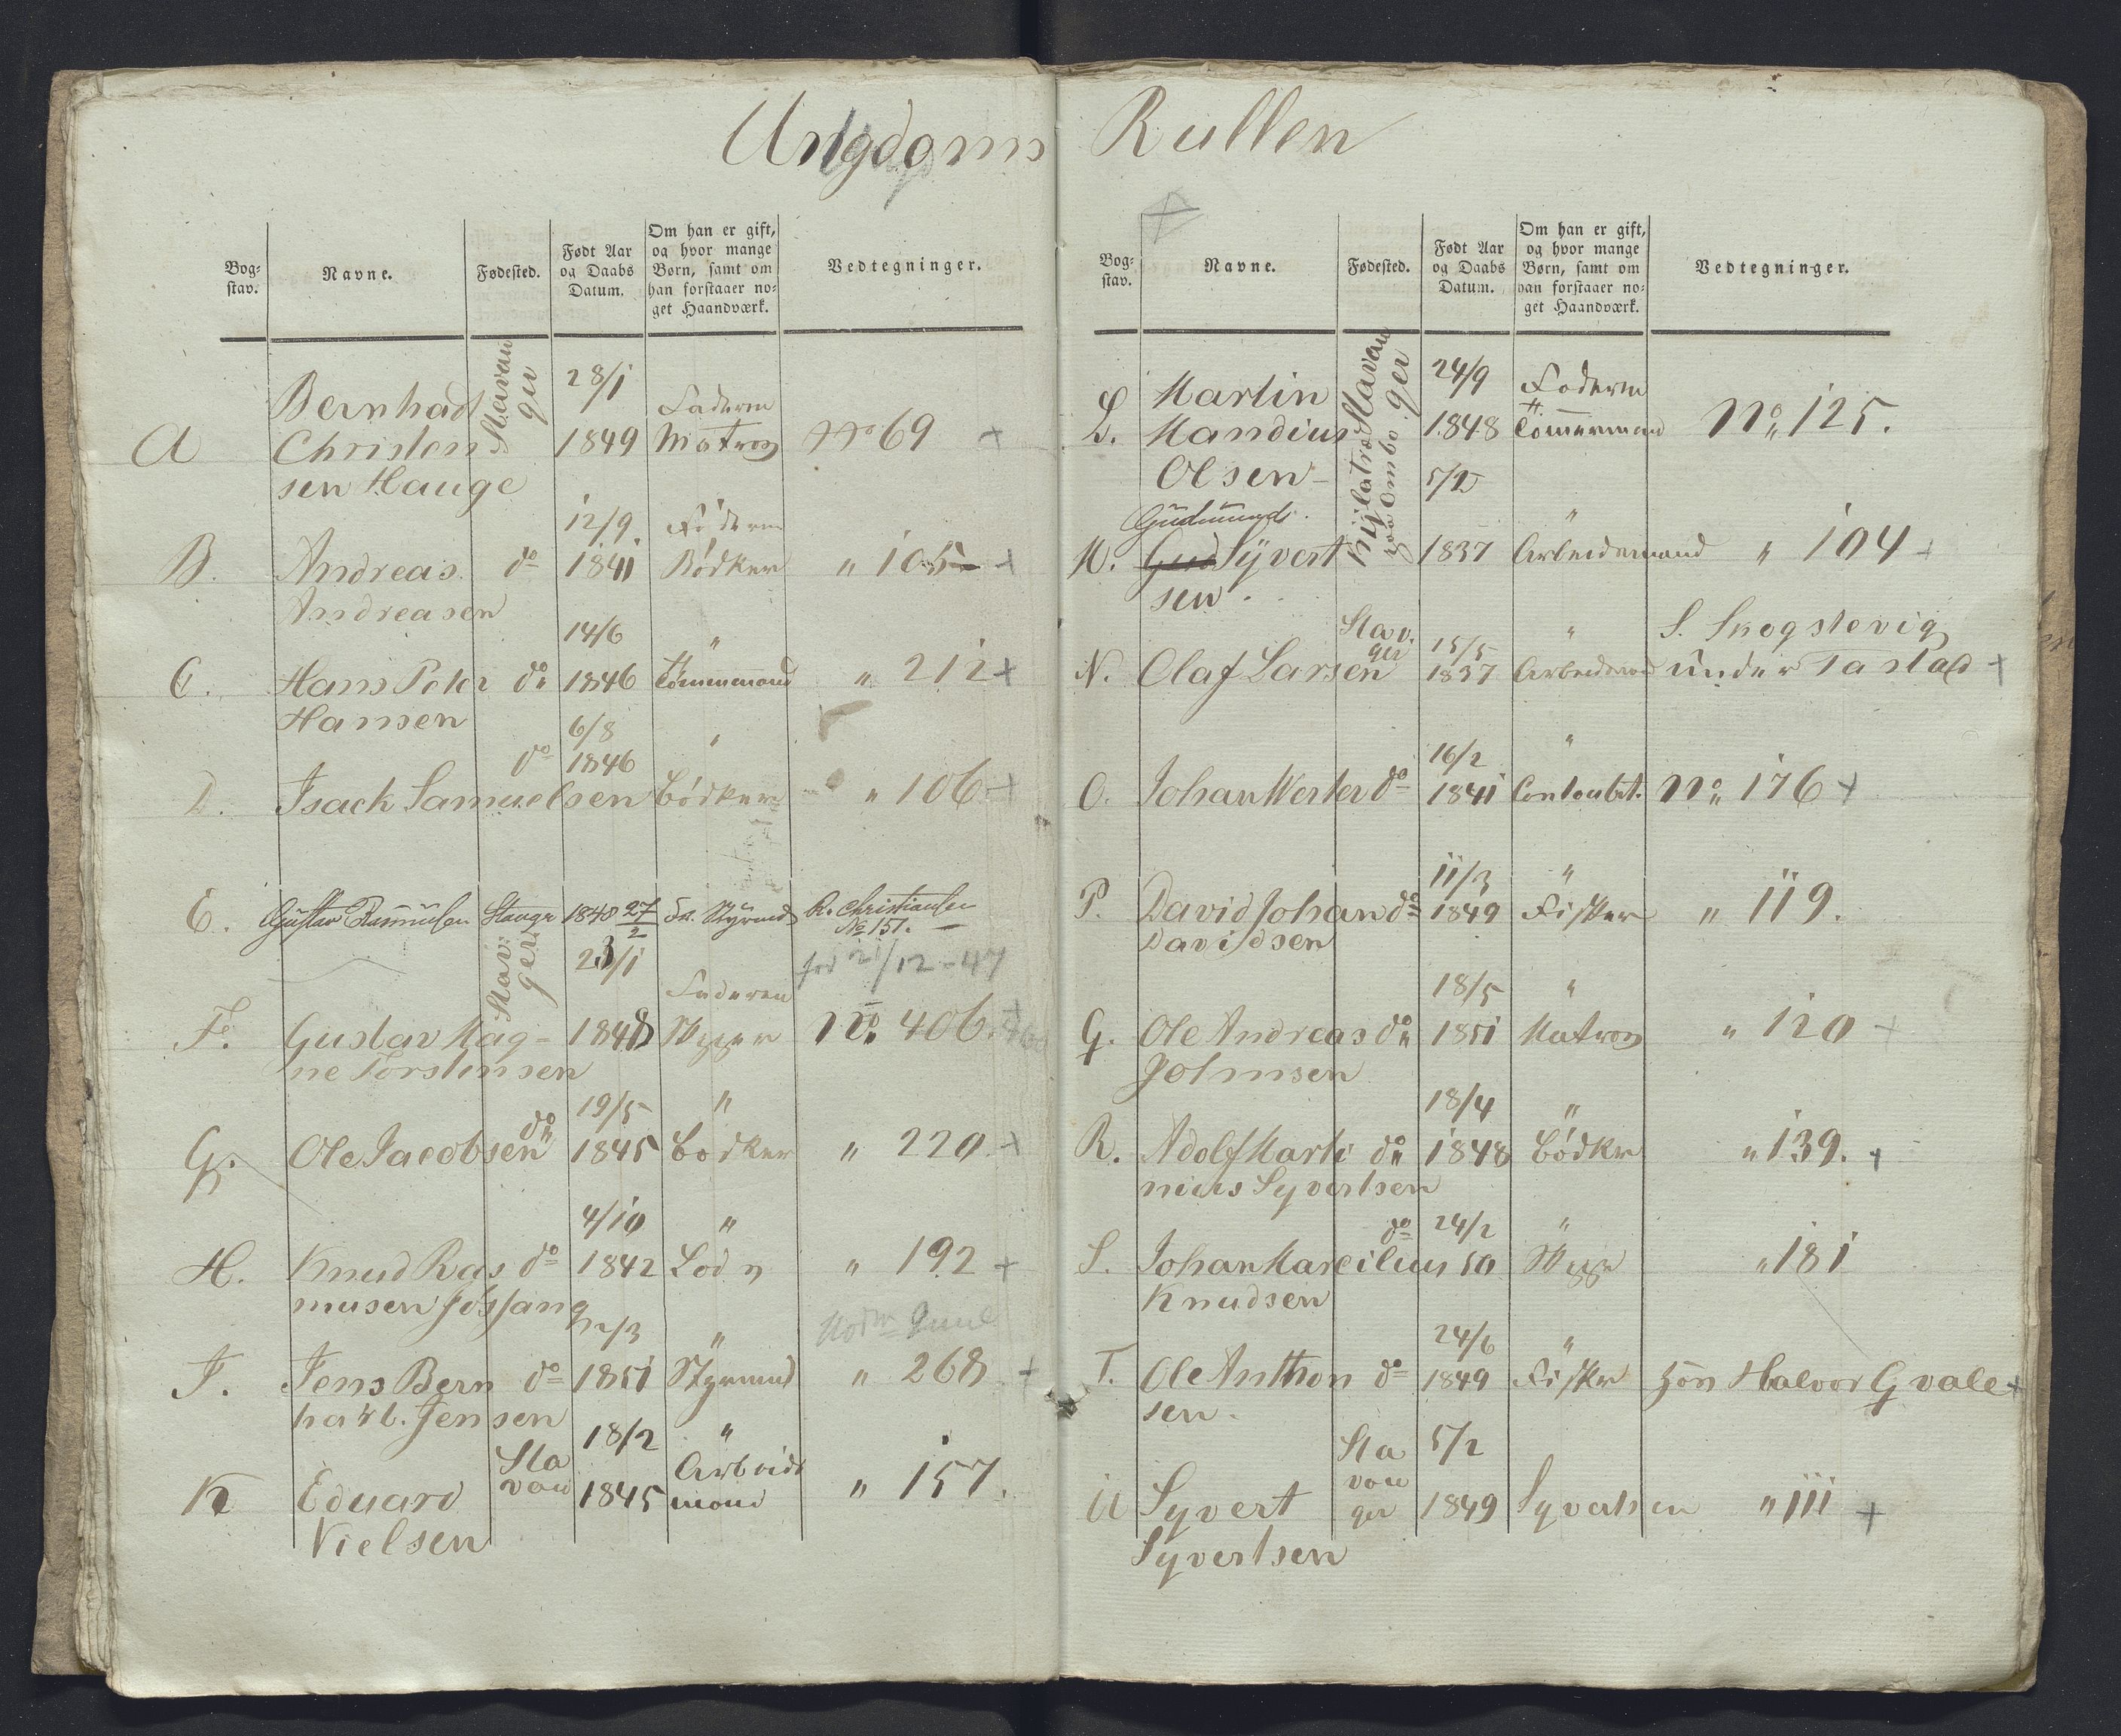 Ungdoms Rullen
Bog-
stav.
Navne.
Fødested.
Født Aar
og Daabs
Datum.
Om han er gift,
og hvor mange
Børn, samt om
han forstaaer no-
get Haandværk.
Vedtegninger.
A
Bernhad
Christen
sen Hauge
Stavan
ger
28/1
1849
Faderen
Matros
No 69 +
B.
Andreas
Andreasen
do
12/9
1841
Faderen
Bødker
" 105 +
C.
Hans Peter
Hansen
do
14/6
1846
"
Tømmermand
" 212 +
D.
Isach Samuelsen
do
6/8
1846
"
Bødker
" 106 +
E.
Gustav Rasmusen
1848 27/2
Fa. Styrmd
R. Christiansen
No 151.
F.
Gustav Mag-
ne Torstensen
Stav.
ger
23/1
1848
fød 21/12-47
Faderen
No 406. +
G.
Ole Jacobsen
do
19/5
1845
"
Bødker
" 220 +
H.
Knud Ras
musen Jøssang
do
4/10
1842
"
Lods
" 192 +
I.
Jens Bern
hard. Jensen
do
12/3
1851
"
Styrmand
" 268 +
K
Eduard
Nielsen
Sta
van
18/2
1845
"
Arbeids
mand
" 157.
Bog-
stav.
Navne.
Fødested.
Født Aar
og Daabs
Datum.
Om han er gift,
og hvor mange
Børn, samt om
han forstaaer no-
get Haandværk.
Vedtegninger.
L.
Martin
Mandius
Olsen
Stavan
ger
24/9
1848
Faderen
Tømmermand
No 125.
M.
Gudmund
Syvert
sen.
Ombo
1837
"
Arbeidsmand
" 104 +
N.
Olaf Larsen
Stav.
ger
15/5
1837
"
S. Skogstevig
under Tastad +
O.
Johan Wester
do
16/2
1841
"
No 176 +
P.
David Johan
Davidsen
do
11/3
1849
"
Fisker
" 119.
Q.
Ole Andreas
Johnsen
do
18/5
1851
"
Matros
" 120 +
R.
Adolf Marti
nius Syvertsen
do
18/4
1848
"
Bødker
" 139. +
S.
Johan Marcilius
Knudsen
do
24/2
50
"
" 181
T.
Ole Anthon
sen.
do
24/6
1849
"
Fisker
hos Halvor Gvale +
U
Syvert
Syvertsen
Sta
van
ger
5/2
1849
Syvertsen
" 111 +